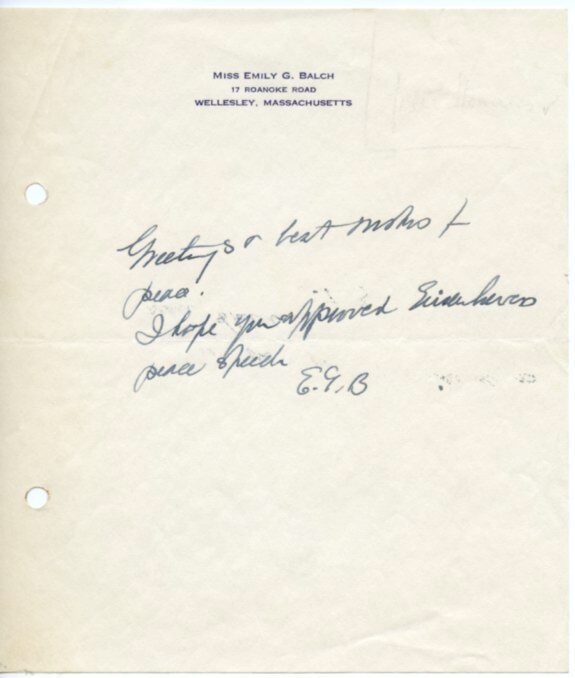 MISS EMILY G. BALCH
17 ROANOKE ROAD
WELLESLEY, MASSACHUSETTS
Greetings & best wishes f
peace.
I hope you approved Eisenhowers
peace speech
E.G.B